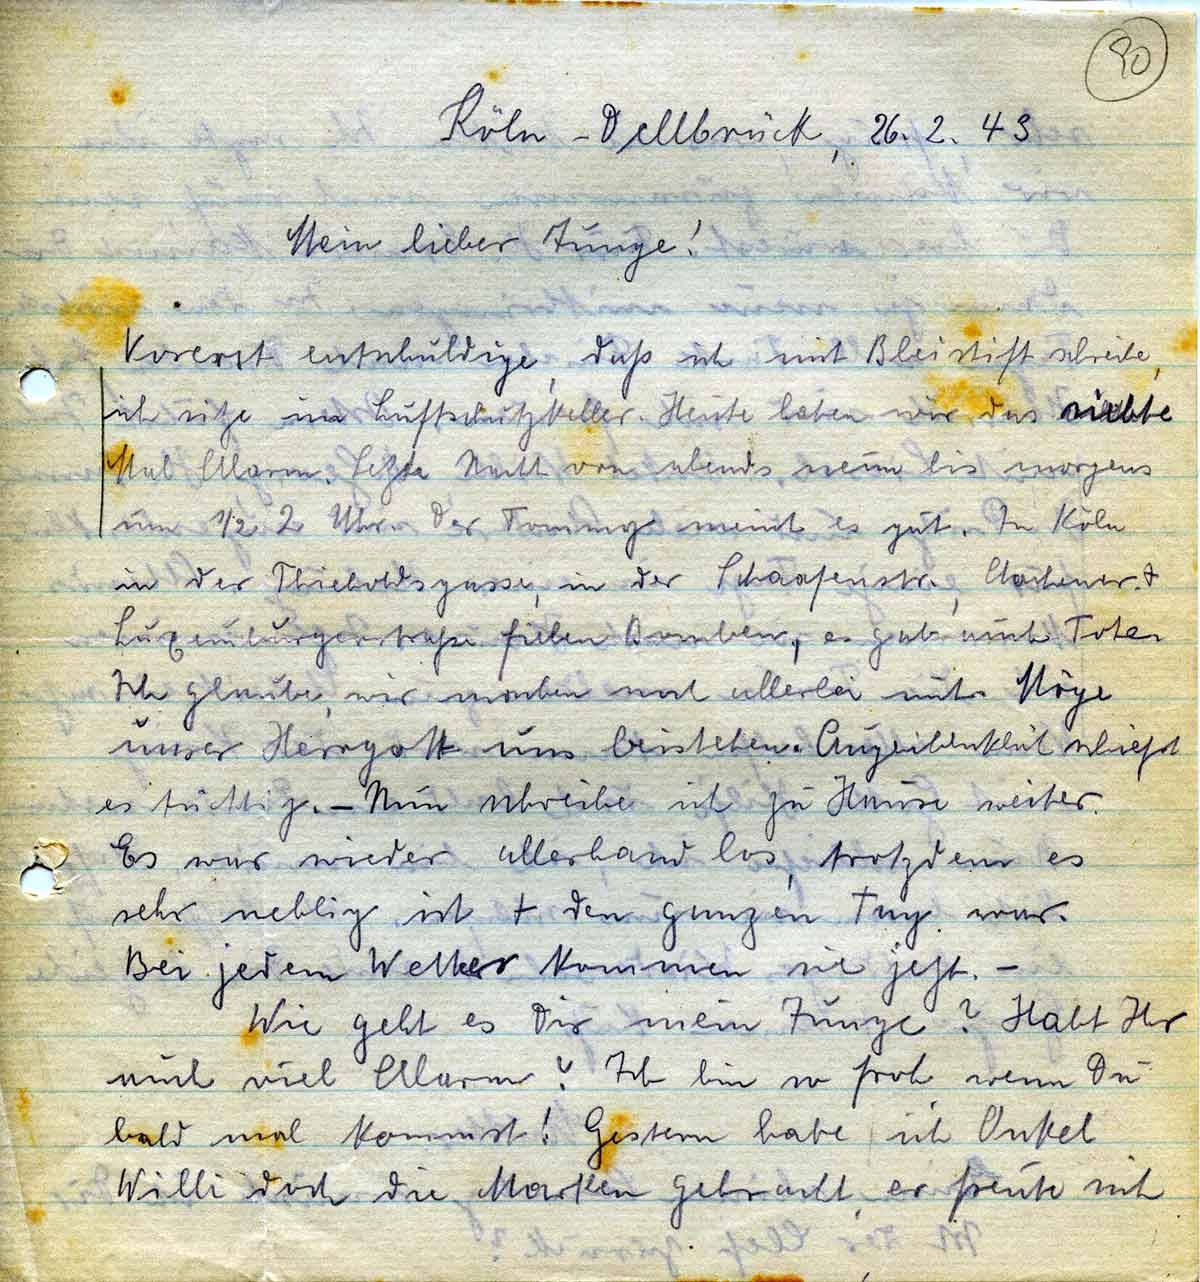 90
Köln-Dellbrück, 26. 2. 43
Mein lieber Junge!
Vorerst entschuldige, daß ich mit Bleistift schreibe,
ich sitze im Luftschutzkeller. Heute haben wir das siebte
Mal Alarm. Letzte Nacht von abends neun bis morgens
um 1/2 2 Uhr. Der Tommy meint es gut. In Köln
in der Thieboldsgasse, in der Schaafenstr., Aachener- +
Luxemburgerstraße fielen Bomben, es gab auch Tote.
Ich glaube, wir machen noch allerlei mit. Möge
unser Herrgott uns beistehen. Augenblicklich schießt
es tüchtig. – Nun schreibe ich zu Hause weiter.
Es war wieder allerhand los, trotzdem es
sehr neblig ist + den ganzen Tag war.
Bei jedem Wetter kommen sie jetzt. –
Wie geht es Dir mein Junge? Habt Ihr
auch viel Alarm? Ich bin so froh, wenn Du
bald mal kommst! Gestern habe ich Onkel
Willi doch die Marken gebracht, er freute sich